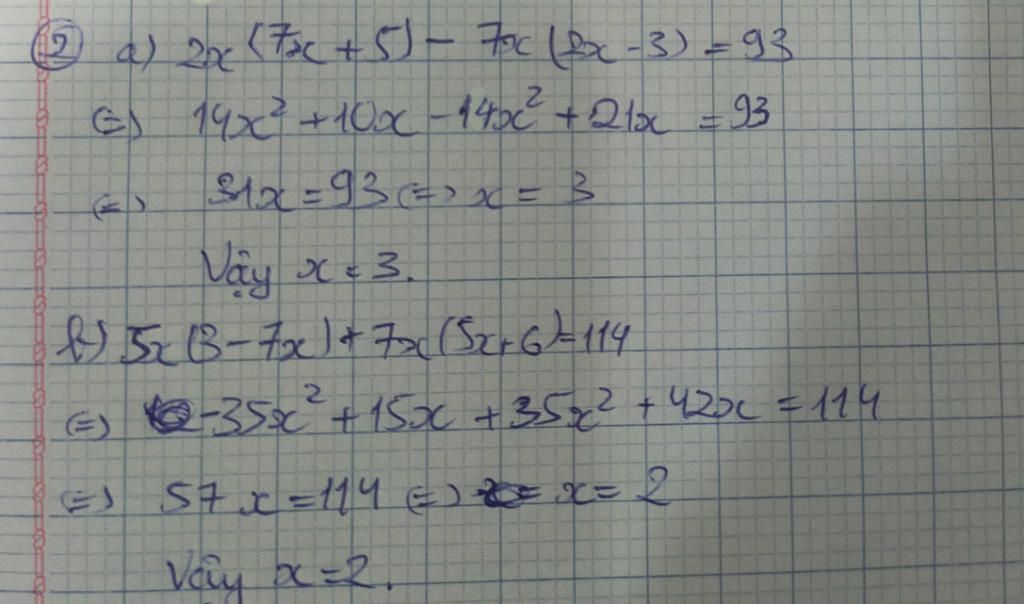 ② a) 2x(7x + 5) - 7x(2x - 3) = 93
(=) 14x² + 10x - 14x² + 21x = 93
(=) 31x = 93 (=) x = 3
Vậy x = 3.
b) 5x(3 - 7x) + 7x(5x + 6) = 114
(=) -35x² + 15x + 35x² + 42x = 114
(=) 57x = 114 (=) x = 2
Vậy x = 2.